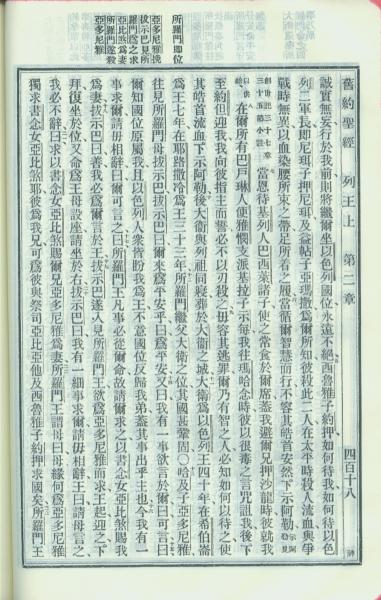 舊約聖經 列王上 第二章 四百十八
誠實無妄行於我前則將纘爾坐以色列國位永遠不絕西魯雅子約押如何待我如何待以色
列二軍長即尼珥子押尼珥及益帖子亞瑪撒爲爾所知彼殺此二人在太平時殺人流血與爭
戰時無異以血染腰所束之帶足所着之履當循爾智慧而行不容其皓首安然下示阿勒
創世記三十七章
三十五節小註
當恩待基列人巴西萊諸子使之常食於爾席蓋我避爾兄押沙龍時彼就我
在爾所有巴戶琳人便雅憫支派基拉子示每我往瑪哈念時彼以很毒之言咒詛我後下
至約但迎我我向彼指主而誓必不以刃殺之毋容其逃罪爾乃有智之人必知如何以待之使
其皓首流血下示阿勒後大衞與列祖同寢葬於大衞之城大衞爲以色列王四十年在希伯崙
爲王七年在耶路撒冷爲王三十三年所羅門繼父大衞之位其國甚鞏固○哈及子亞多尼雅
往見所羅門母拔示巴拔示巴曰爾來爲平安乎曰爲平安又曰我有一事欲言於爾曰可言曰
爾知國位原屬我且以色列人衆皆盼我爲王不意國位反歸我弟蓋其事出乎主也今我有一
事求爾請毋相辭曰爾可言之曰所羅門王凡事必從爾命故請爾求之以書念女亞比煞賜我
爲妻拔示巴曰善我必爲爾言於王拔示巴遂入見所羅門王欲爲亞多尼雅而求王起迎之下
拜復坐於位又命爲王母設座請坐於右拔示巴曰我有一細事求爾請毋相辭王曰請母言之
我必不辭曰求以書念女亞比煞賜爾兄亞多尼雅爲妻所羅門王謂母曰母緣何爲亞多尼雅
獨求書念女亞比煞耶彼爲我兄可爲彼與祭司亞比亞他及西魯雅子約押求國矣所羅門王
所羅門即位
亞多尼雅挽
拔示巴見所
羅門爲之求
亞比煞爲妻
所羅門遂殺
亞多尼雅